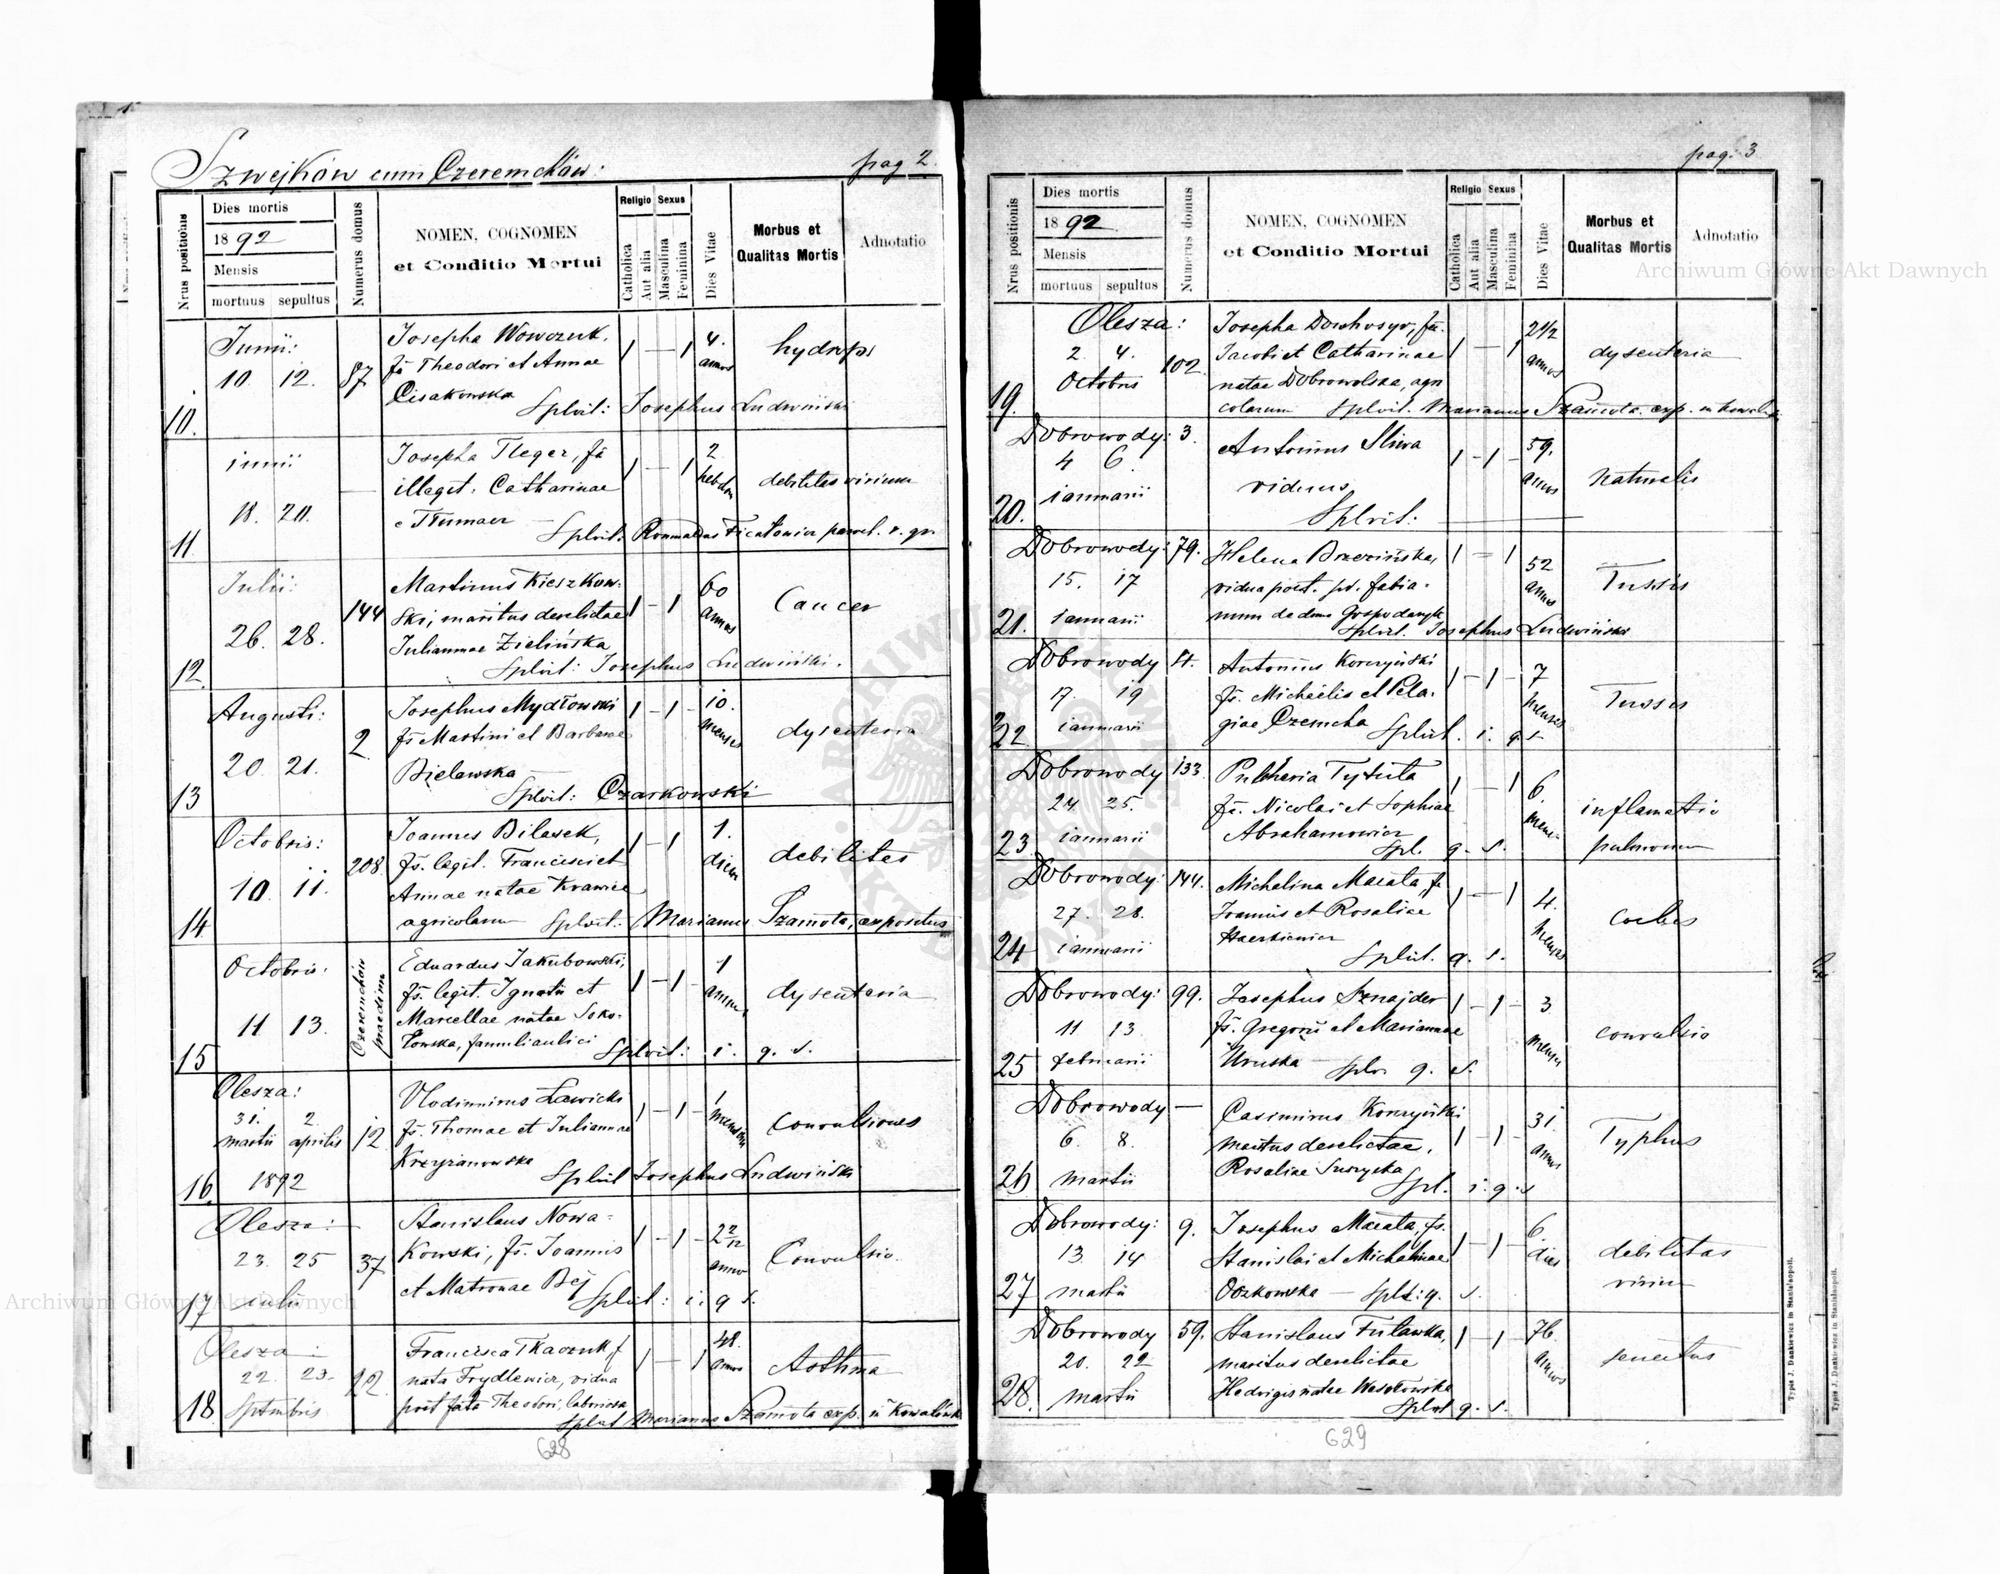 Szwejków cum Czeremchów: pag 2.
Nrus positionis
Dies mortis
1892
Mensis
mortuus sepultus
Numerus domus
NOMEN, COGNOMEN
et Conditio Mortui
Religio Sexus
Catholica
Aut alia
Masculina
Feminina
Dies Vitae
Morbus et
Qualitas Mortis
Adnotatio
Junii: Josepha Wowczuk, 4.
10. 12. 87 fa Theodori et Annae 1 — 1 annos hydrops
Cisakowska
10. Splvit: Josephus Ludwiński
junii Josepha Fleger, fa 2
illegit. Catharinae 1 — 1 hebdom debilitas virium
18. 20. — e Tłumacz
11. Splvit: Romualdus
Julii: Martinus Kieszkow- 60
144 ski, maritus derelictae 1 — 1 annos Cancer
26. 28. Juliannae Zielińska
12. Splvit: Josephus Ludwiński.
Augusti: Josephus Mydłowski 1 — 1 — 10.
2 fs Martini et Barbarae menses dysenteria
20. 21. Bielawska
13 Splvit: Czarkowski
Octobris: Joannes Bilasek, 1.
208. fs. legit. Francisci et 1 — 1 diem debilitas
10. 11. Annae natae Krawiec
14 agricolarum Splvit: Marianus Szamota, expositus
Octobris: Czeremchów praedium Eduardus Jakubowski, 1
fs. legit. Ignatii et 1 — 1 — annus dysenteria
11 13. Marcellae natae Soko-
15 łowska, famuli aulici Splvit: i. q. s.
Olesza: Vlodimirus Ławicki
31. 2. 1
martii aprilis 12. fs. Thomae et Juliannae 1 — 1 — mensem Convulsiones
Krzyżanowska
16. 1892 Splvit Josephus Ludwiński
Olesza: Stanislaus Nowa-
23. 25 37 kowski, fs. Joannis 1 — 1 — 2 2/12 annos Convulsio.
et Matronae Bej
17 julii Splvit: i. q s.
Olesza: Francisca Tkaczuk f 48.
22. 23. 22. nata Frydlewicz, vidua 1 — 1 annos Asthma
post fata Theodori, laboriosa
18 Septembris Splvit Marianus Szamota exp. in Kowalówka
628
pag. 3
Nrus positionis
Dies mortis
1892
Mensis
mortuus sepultus
Numerus domus
NOMEN, COGNOMEN
et Conditio Mortui
Religio Sexus
Catholica
Aut alia
Masculina
Feminina
Dies Vitae
Morbus et
Qualitas Mortis
Adnotatio
Olesza: Josepha fa. 2 1/2
2. 4. 102. Jacobi et Catharinae 1 — 1 annos dysenteria
Octobris natae Dobrowolska, agri
19. colarum Splvit. Marianus Szamota exp. in
Dobrowody: 3. Antonius Sliwa 59.
4 6. viduus 1 — 1 — annos naturalis
20. januarii Splvit:
Dobrowody: 79. Helena Brzezińska, 1 — 1 52
15. 17 vidua post. annos Tussis
21. januarii de domo Splvit. Josephus Ludwiński
Dobrowody 4. Antonius Korczyński 1 — 1 — 7
17. 19 fs. Michaelis et Pela- menses Tussis
22. januarii giae Czemcha Splvit. i. q s
Dobrowody 133. Pulcheria Tytuła 1 — 1 6.
24. 25. fa. Nicolai et Sophiae mens. inflamatio
23. januarii Abrahamowicz Spl. q. s. pulmonum
Dobrowody: 144. Michalina Macata, fa 1 — 1 4.
27. 28. Joannis et Rosaliae menses
24 januarii Splvit. q. s.
Dobrowody: 99. Josephus Sznajder 1 — 1 — 3
11 13. fs. Gregorii et Mariannae menses convulsio
25 februarii Uruska — Splv q. s.
Dobrowody — Casimirus Korczyński 31.
6. 8. maritus derelictae, 1 — 1 — annos Typhus
26 martii Rosaliae Spl. i. q. s
Dobrowody: 9. Josephus Macata, fs. 6.
13. 14 Stanislai et Michalinae 1 — 1 — dies debilitas
27 martii Oczkowska — Splt: q. s. virium
Dobrowody 59. Stanislaus Fuławka, 1 — 1 — 76.
20. 22 maritus derelictae annos senectus
28. martii Hedvigis natae Wesołowska
Splvit q. s.
629
Typis J. Dankiewicz in Stanislaopoli.
Typis J. Dankiewicz in Stanislaopoli.
Archiwum Główne Akt Dawnych
Archiwum Główne Akt Dawnych
ARCHIWUM GŁÓWNE AKT DAWNYCH